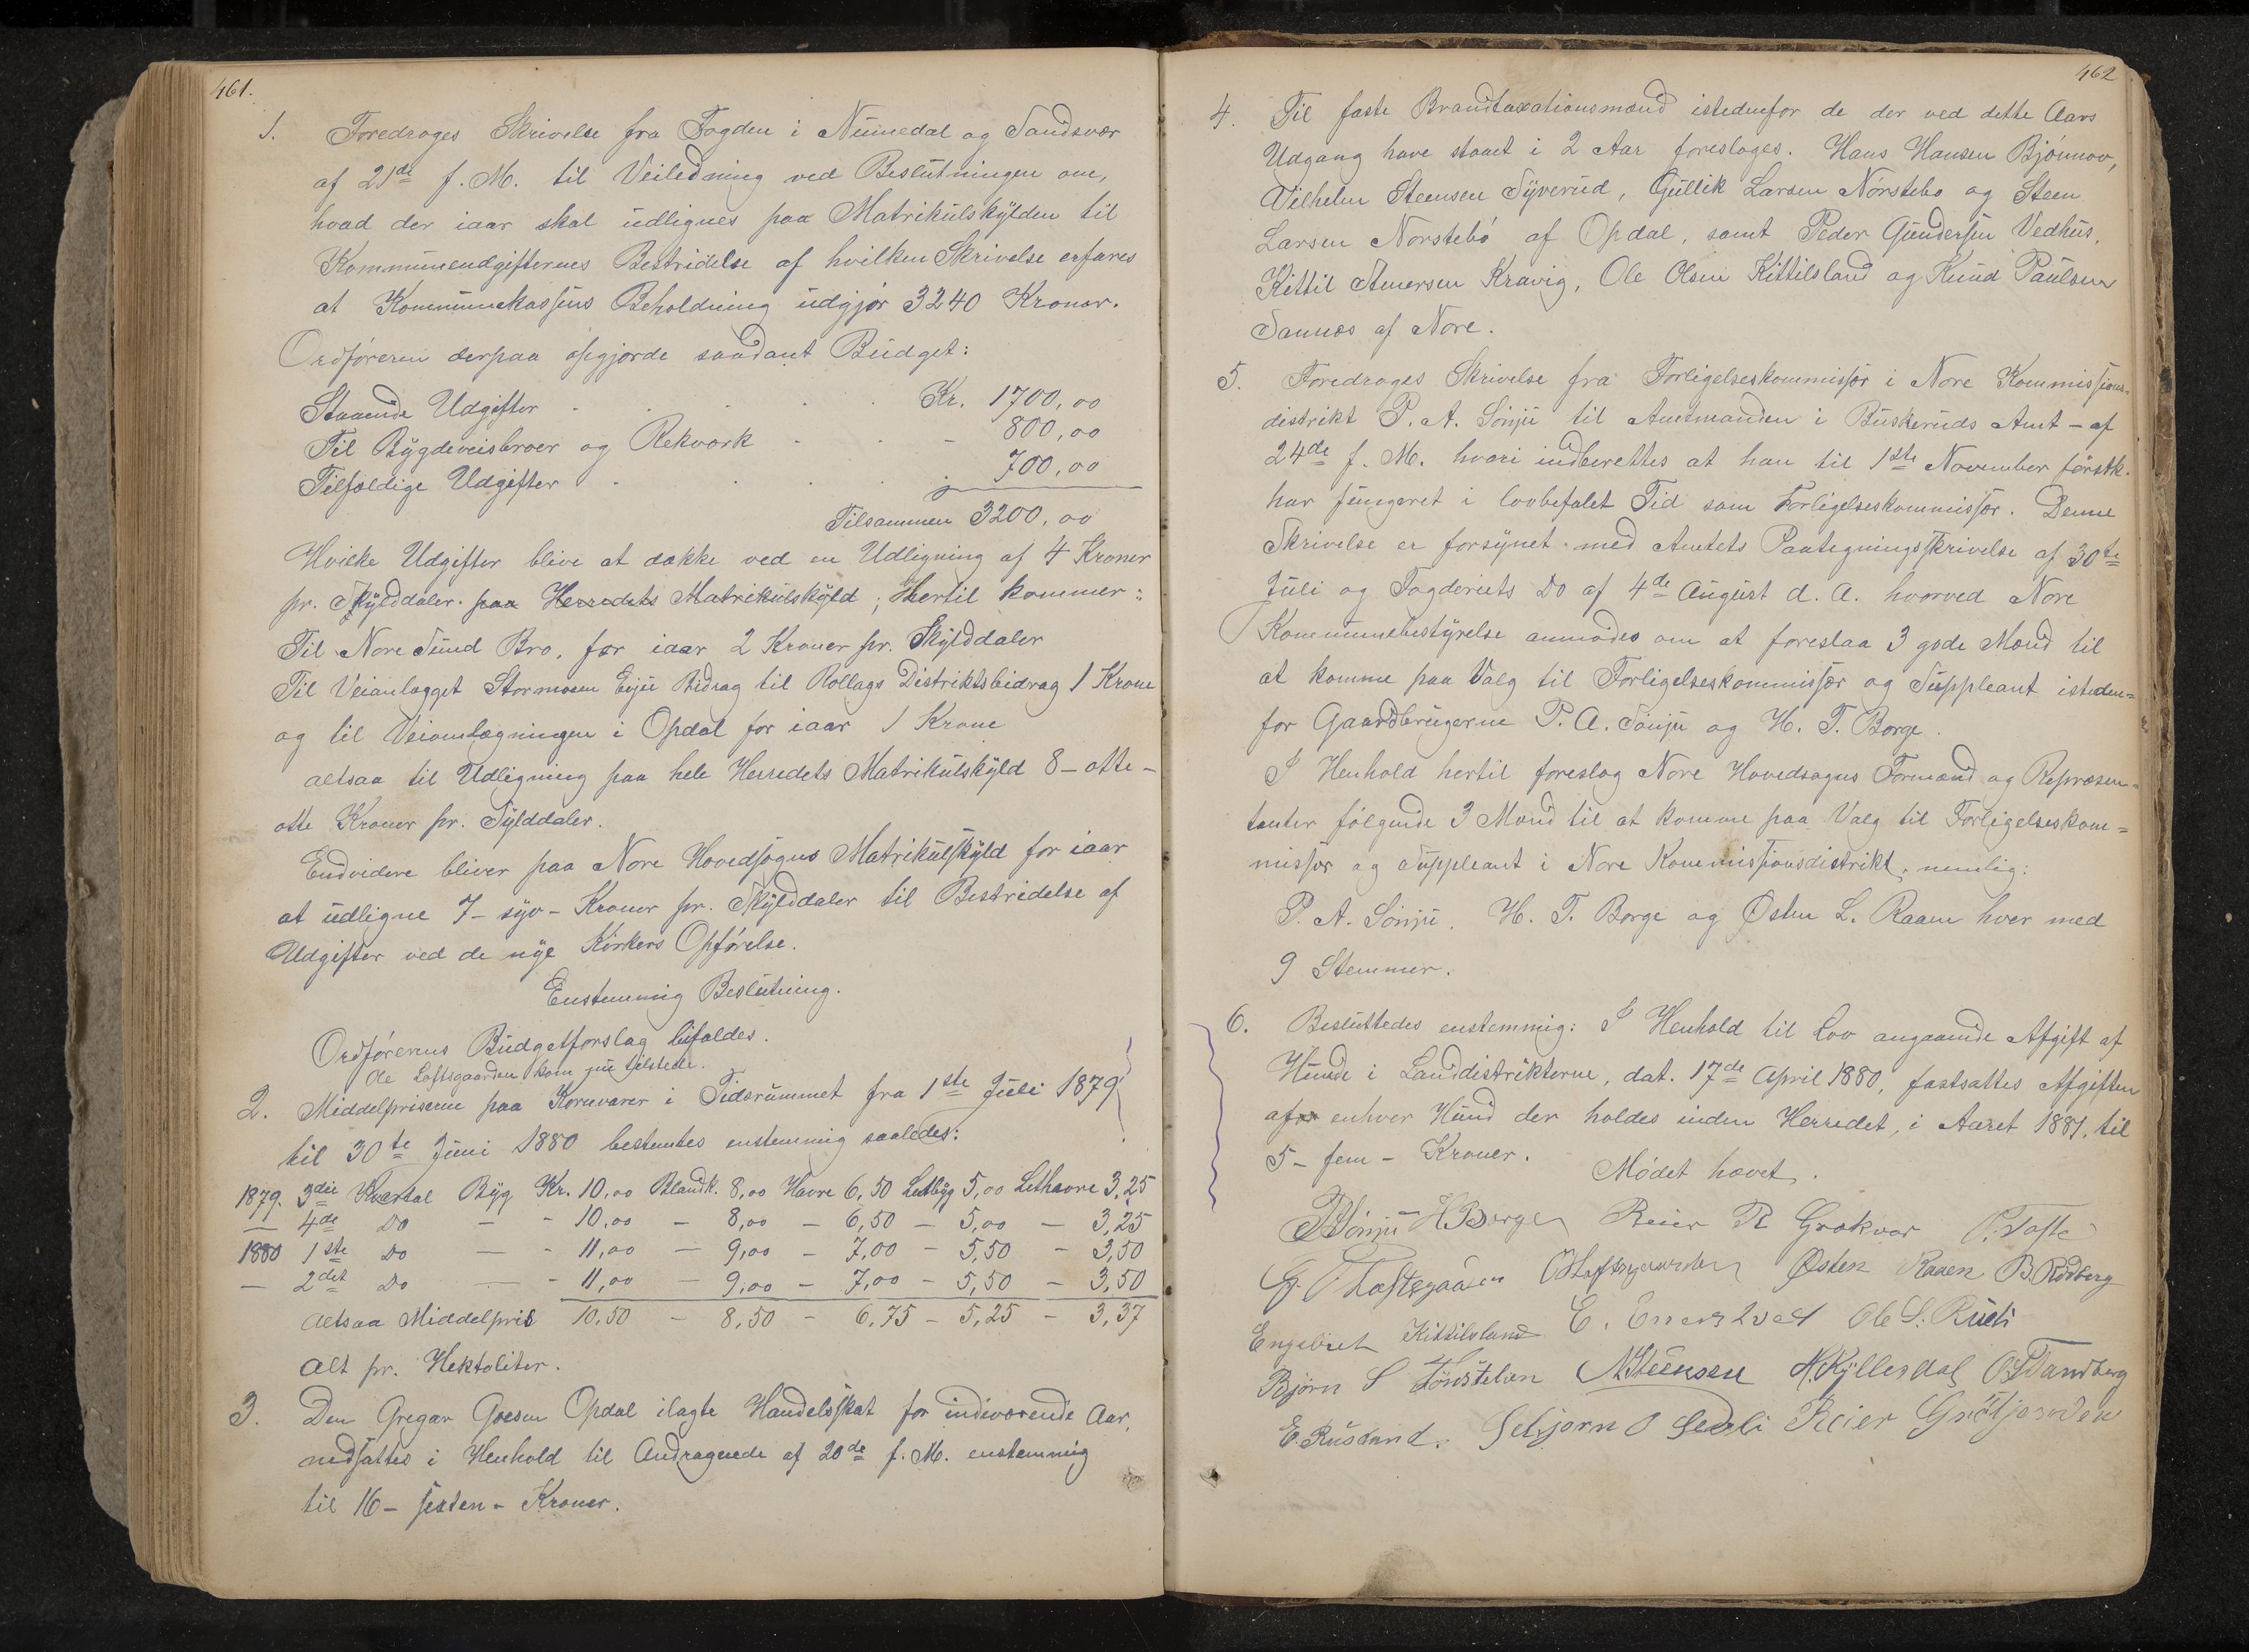 461.
1. Foredroges Skrivelse fra Fogden i Numedal og Sandsvær
af 21de f. M. til Veiledning ved Beslutningen om,
hvad der iaar skal udlignes paa Matrikulskylden til
Kommuneudgifternes Bestridelse af hvilken Skrivelse erfares
at Kommunekassens Beholdning udgjør 3240 Kroner.
Ordføreren derpaa opgjorde saadant Budget:
Staaende Udgifter . . . . Kr. 1700,00
Til Bygdeveisbroer og Rekværk . . - 800,00
Tilfældige Udgifter . . . . 700,00
Tilsammen 3200,00
Hvilke Udgifter blive at dække ved en Udligning af 4 Kroner
pr. Skylddaler. paa Herredets Matrikulskyld; Hertil kommer:
Til Nore Sund Bro, for iaar 2 Kroner pr. Skylddaler
Til Veianlægget Stormoen Eiju Bidrag til Rollags Distriktsbidrag 1 Krone
og til Veiomlægningen i Opdal for iaar 1 Krone
altsaa til Udligning paa hele Herredets Matrikulskyld 8 - otte -
otte Kroner pr. Sylddaler.
Endvidere bliver paa Nore Hovedsogns Matrikulskyld for iaar
at udligne 7 - syv - Kroner pr. Skylddaler til Bestridelse af
Udgifter ved de nye Kirkers Opførelse.
Enstemmig Beslutning.
Ordførerens Budgetforslag bifaldes.
Ole Loftsgaarden kom nu tilstede.
2. Middelpriserne paa Kornvarer i Tidsrummet fra 1ste Juli 1879
til 30te Juni 1880 bestemtes enstemmig saaledes:
1879. 3die Kvartal Byg Kr. 10,00 Blandk. 8,00 Havre 6,50 Letbyg 5,00 Lethavre 3,25
— 4de Do — - 10,00 — 8,00 — 6,50 — 5,00 — 3,25
1880 1ste Do — - 11,00 — 9,00 - 7,00 - 5,50 - 3,50
— 2det Do — - 11,00 — 9,00 - 7,00 - 5,50 - 3,50
Altsaa Middelpris 10,50 - 8,50 - 6,75 - 5,25 - 3,37
Alt pr. Hektoliter.
3. Den Gregar Goesen Opdal ilagte Handelsskat for indeværende Aar,
nedsattes i Henhold til Andragende af 20de f. M. enstemmig
til 16 - sexten - Kroner.
462
4. Til faste Brandtaxationsmænd istedenfor de der ved dette Aars
Udgang have staaet i 2 Aar foresloges. Hans Hansen Bjønnov,
Vilhelm Steensen Syverud, Gullik Larsen Nørstebø og Steen
Larsen Nørstebø af Opdal, samt Peder Gundersen Vedhus,
Kittil Kravig, Ole Olsen Kittilsland og Knud Paulsen
Sannes af Nore.
5. Foredroges Skrivelse fra Forligelseskommissær i Nore Kommissions-
distrikt P. A. Sønju til Amtmanden i Buskeruds Amt - af
24de f. M. hvori indberettes at han til 1ste November førstk.
har fungeret i lovbefalet Tid som Forligelseskommissær. Denne
Skrivelse er forsynet med Amtets Paategningsskrivelse af 30te
Juli og Fogderiets Do af 4de August d. A. hvorved Nore
Kommunebestyrelse anmodes om at foreslaa 3 gode Mænd til
at komme paa Valg til Forligelseskommissær og Suppleant isteden=
for Gaardbrugerne P. A. Sønju og H. T. Borge.
I Henhold hertil foreslog Nore Hovedsogns Formænd og Repræsen=
tanter følgende 3 Mænd til at komme paa Valg til Forligelseskom=
missær og Suppleant i Nore Kommissionsdistrikt, nemlig:
P. A. Sønju. H. T. Borge og Østen L. Raaen hver med
9 Stemmer.
6. Besluttedes enstemmig: I Henhold til Lov angaaende Afgift af
Hunde i Landdistrikterne, dat. 17de April 1880, fastsattes Afgiften
af enhver Hund der holdes inden Herredet, i Aaret 1881, til
5 - fem - Kroner. Mødet hævet.
Sønju H Borge Reier R Grøkvor Tofte
Loftsgaarden Østen Raaen B. Rødberg
Engebret Kittilsland E. Enerstvedt Ole S. Rueli
Bjørn S Tønstelien N Steensen H. Kyllesdal Tandberg
E. Rusland. Sebjørn O Seveli Reier Grøtjorden